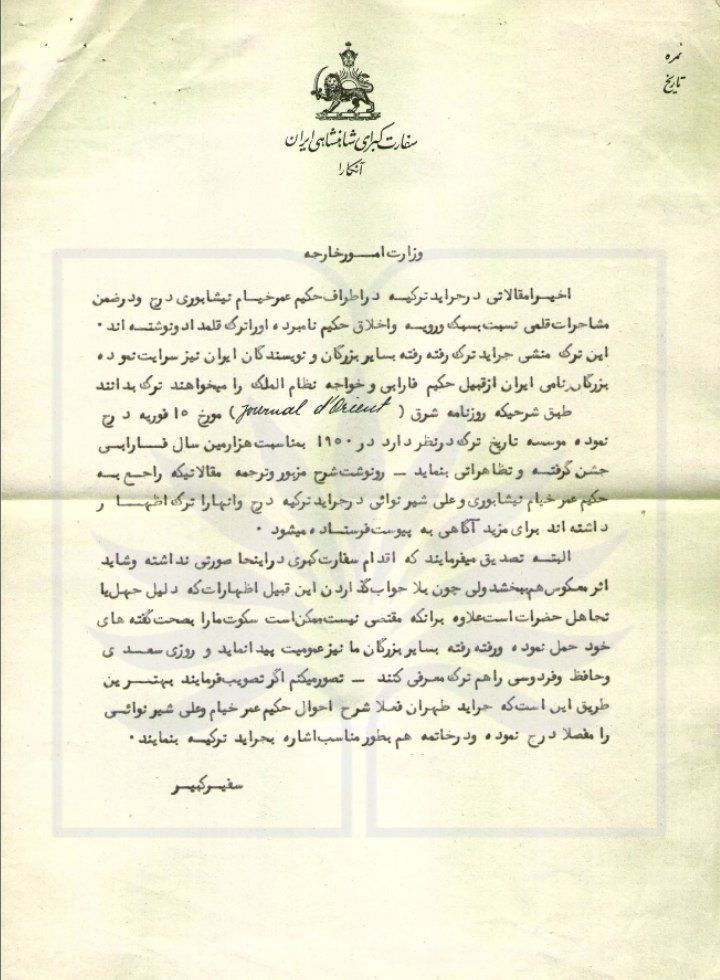 نمره
تاریخ
سفارت کبرای شاهنشاهی ایران
آنکارا
وزارت امور خارجه
اخیرا مقالاتی در جراید ترکیه در اطراف حکیم عمر خیام نیشابوری درج و در ضمن
مشاجرات قلمی نسبت بسبک و رویه و اخلاق حکیم نامبرده او را ترک قلمداد و نوشته اند ۰
این ترک منشی جراید ترک رفته رفته بسایر بزرگان و نویسندگان ایران نیز سرایت نموده
بزرگان نامی ایران از قبیل حکیم فارابی و خواجه نظام الملک را میخواهند ترک بدانند
طبق شرحیکه روزنامه شرق ( Journal d'Orient ) مورخ ۱۵ فوریه درج
نموده موسسه تاریخ ترک در نظر دارد در ۱۹۵۰ بمناسبت هزارمین سال فارابی
جشن گرفته و تظاهراتی بنماید ـ رونوشت شرح مزبور و ترجمه مقالاتیکه راجع به
حکیم عمر خیام نیشابوری و علی شیر نوائی در جراید ترکیه درج و آنها را ترک اظهار
داشته اند برای مزید آگاهی به پیوست فرستاده میشود ۰
البته تصدیق میفرمایند که اقدام سفارت کبری در اینجا صورتی نداشته و شاید
اثر معکوس هم ببخشد ولی چون بلا جواب گذاردن این قبیل اظهارات که دلیل جهل یا
تجاهل حضرات است علاوه بر آنکه مقتضی نیست ممکن است سکوت ما را بصحت گفته های
خود حمل نموده و رفته رفته بسایر بزرگان ما نیز عمومیت پیدا نماید و روزی سعدی
و حافظ و فردوسی را هم ترک معرفی کنند ـ تصور میکنم اگر تصویب فرمایند بهترین
طریق این است که جراید طهران فعلا شرح احوال حکیم عمر خیام و علی شیر نوائی
را مفصلا درج نموده و در خاتمه هم بطور مناسب اشاره بجراید ترکیه بنمایند ۰
سفیر کبیر